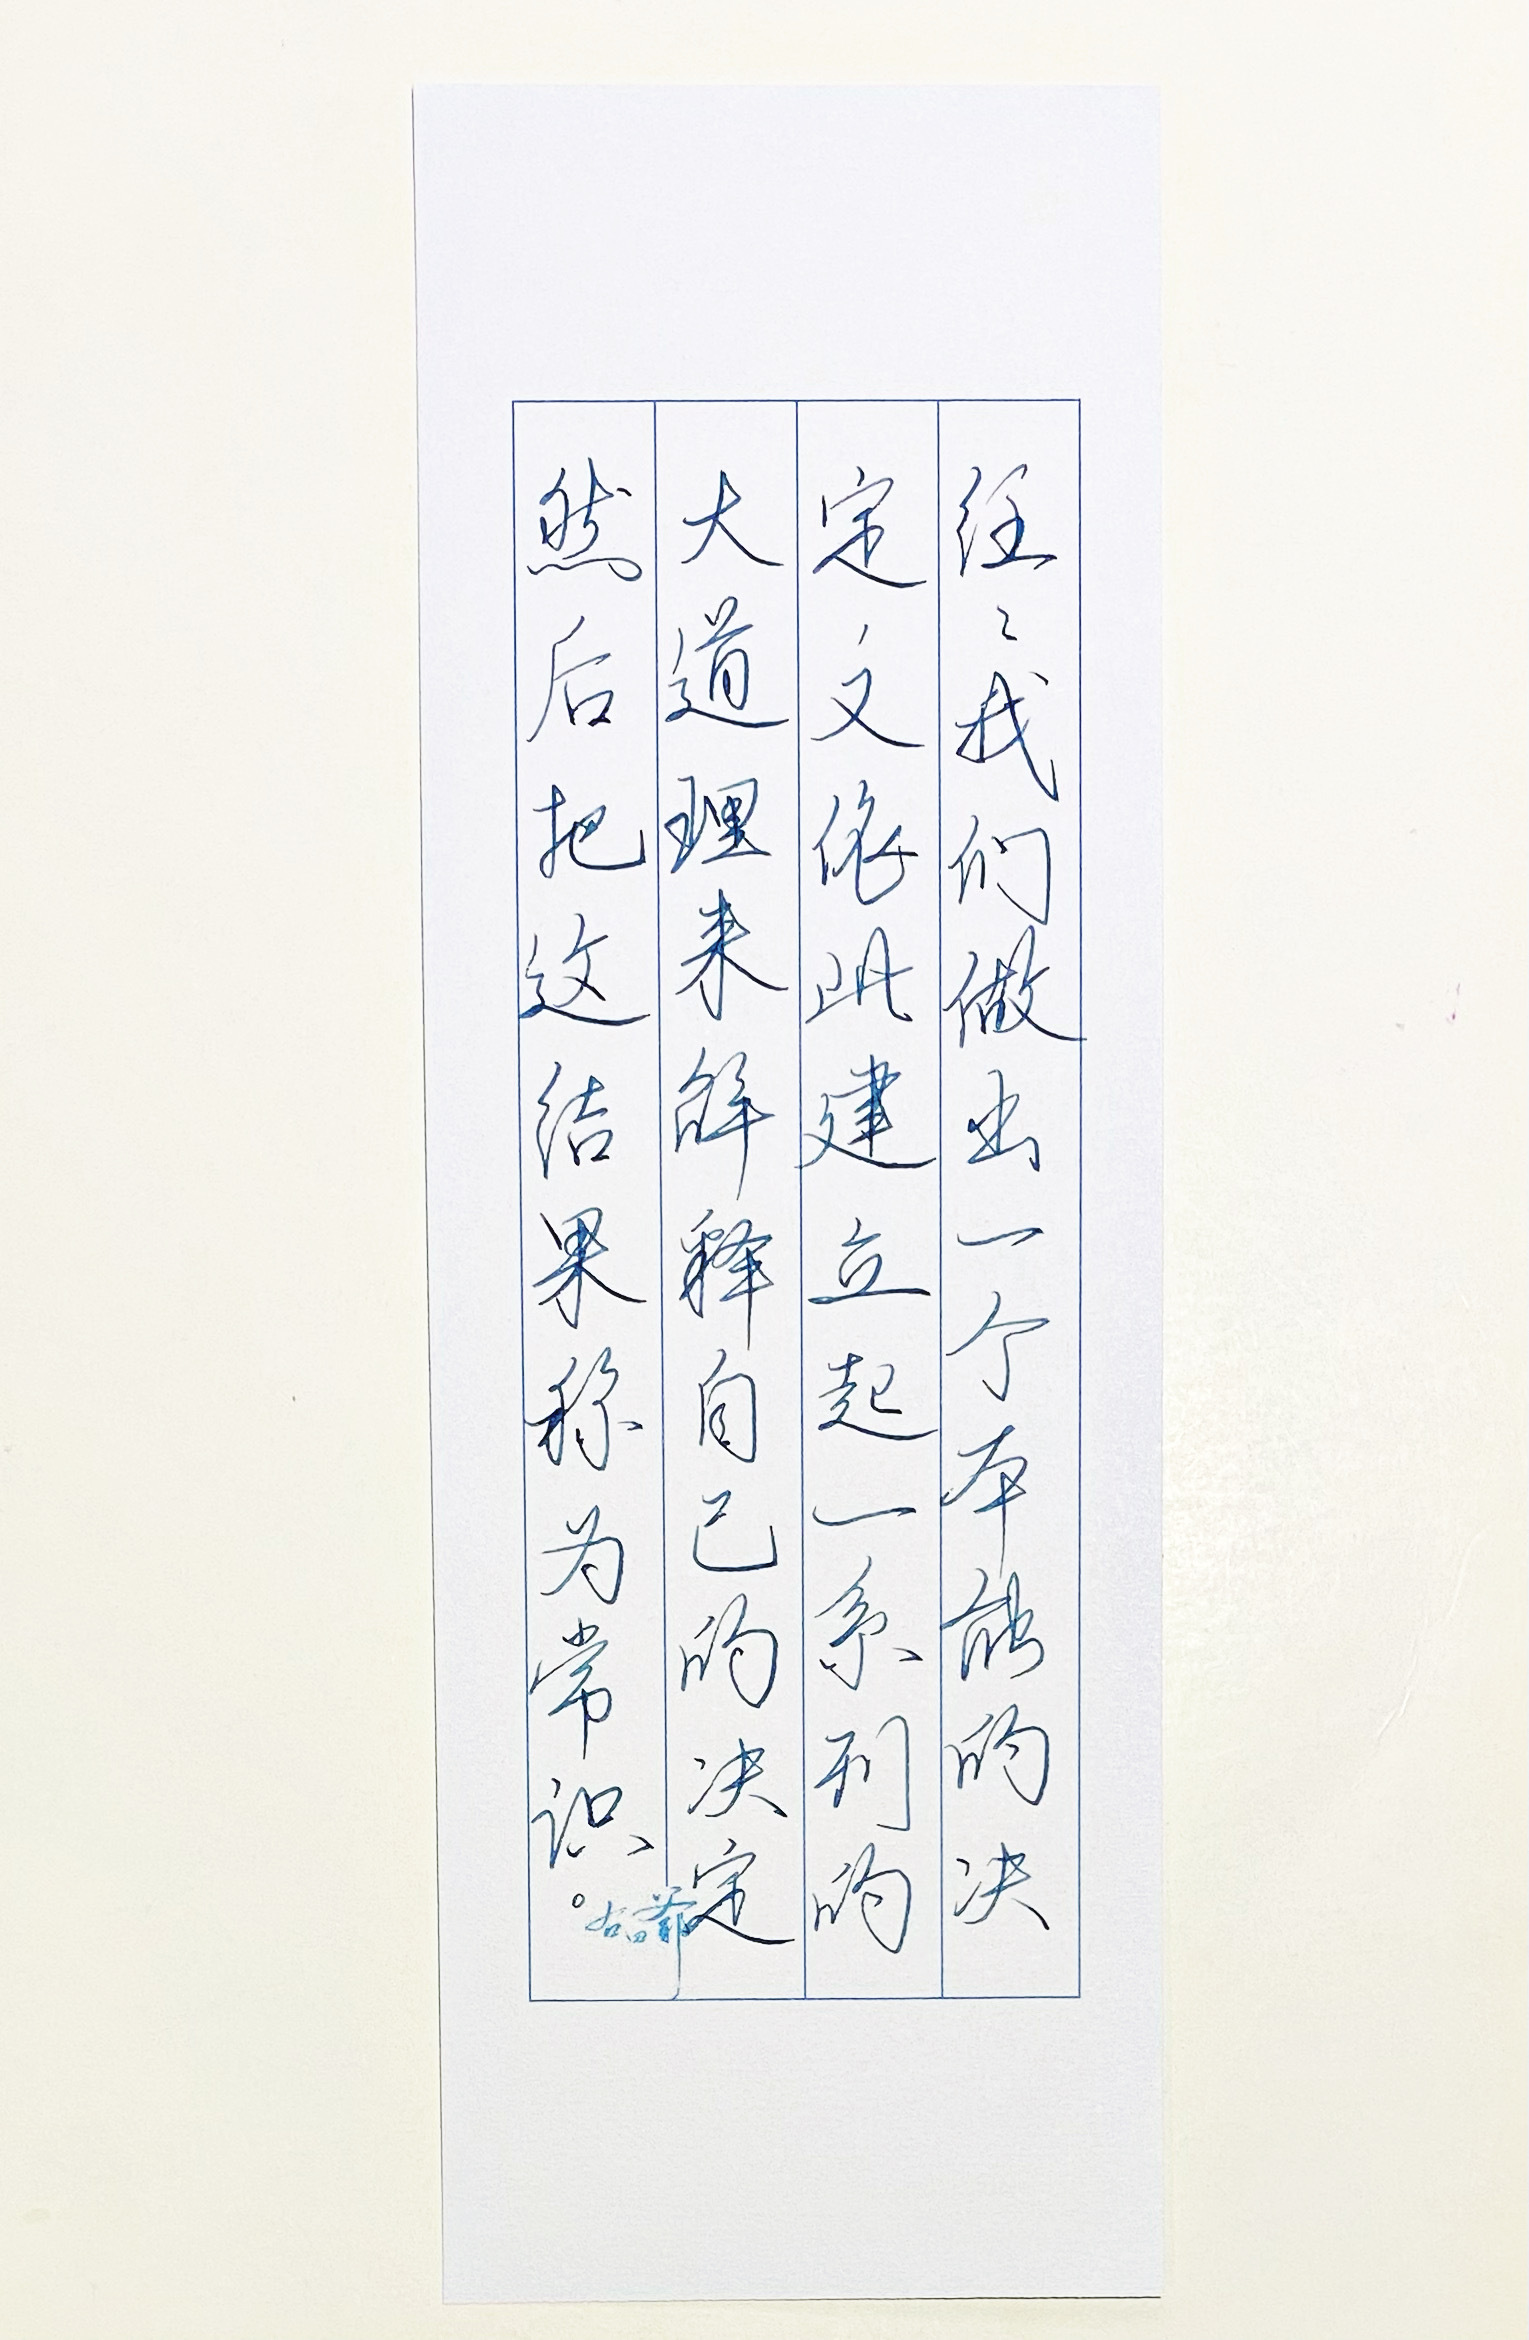 往々我们做出一个本能的决
定文依此建立起一系列的
大道理来解释自己的决定
然后把这结果称为常识。